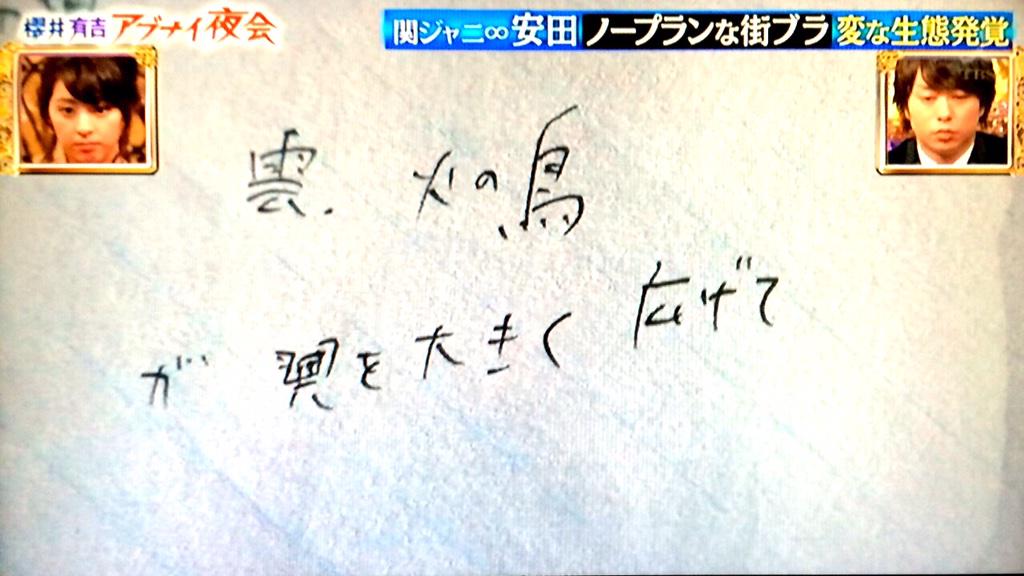 櫻井有吉アブナイ夜会
関ジャニ∞安田 ノープランな街ブラ 変な生態発覚
TBS
雲. 火の鳥
が 翼を大きく 広げて